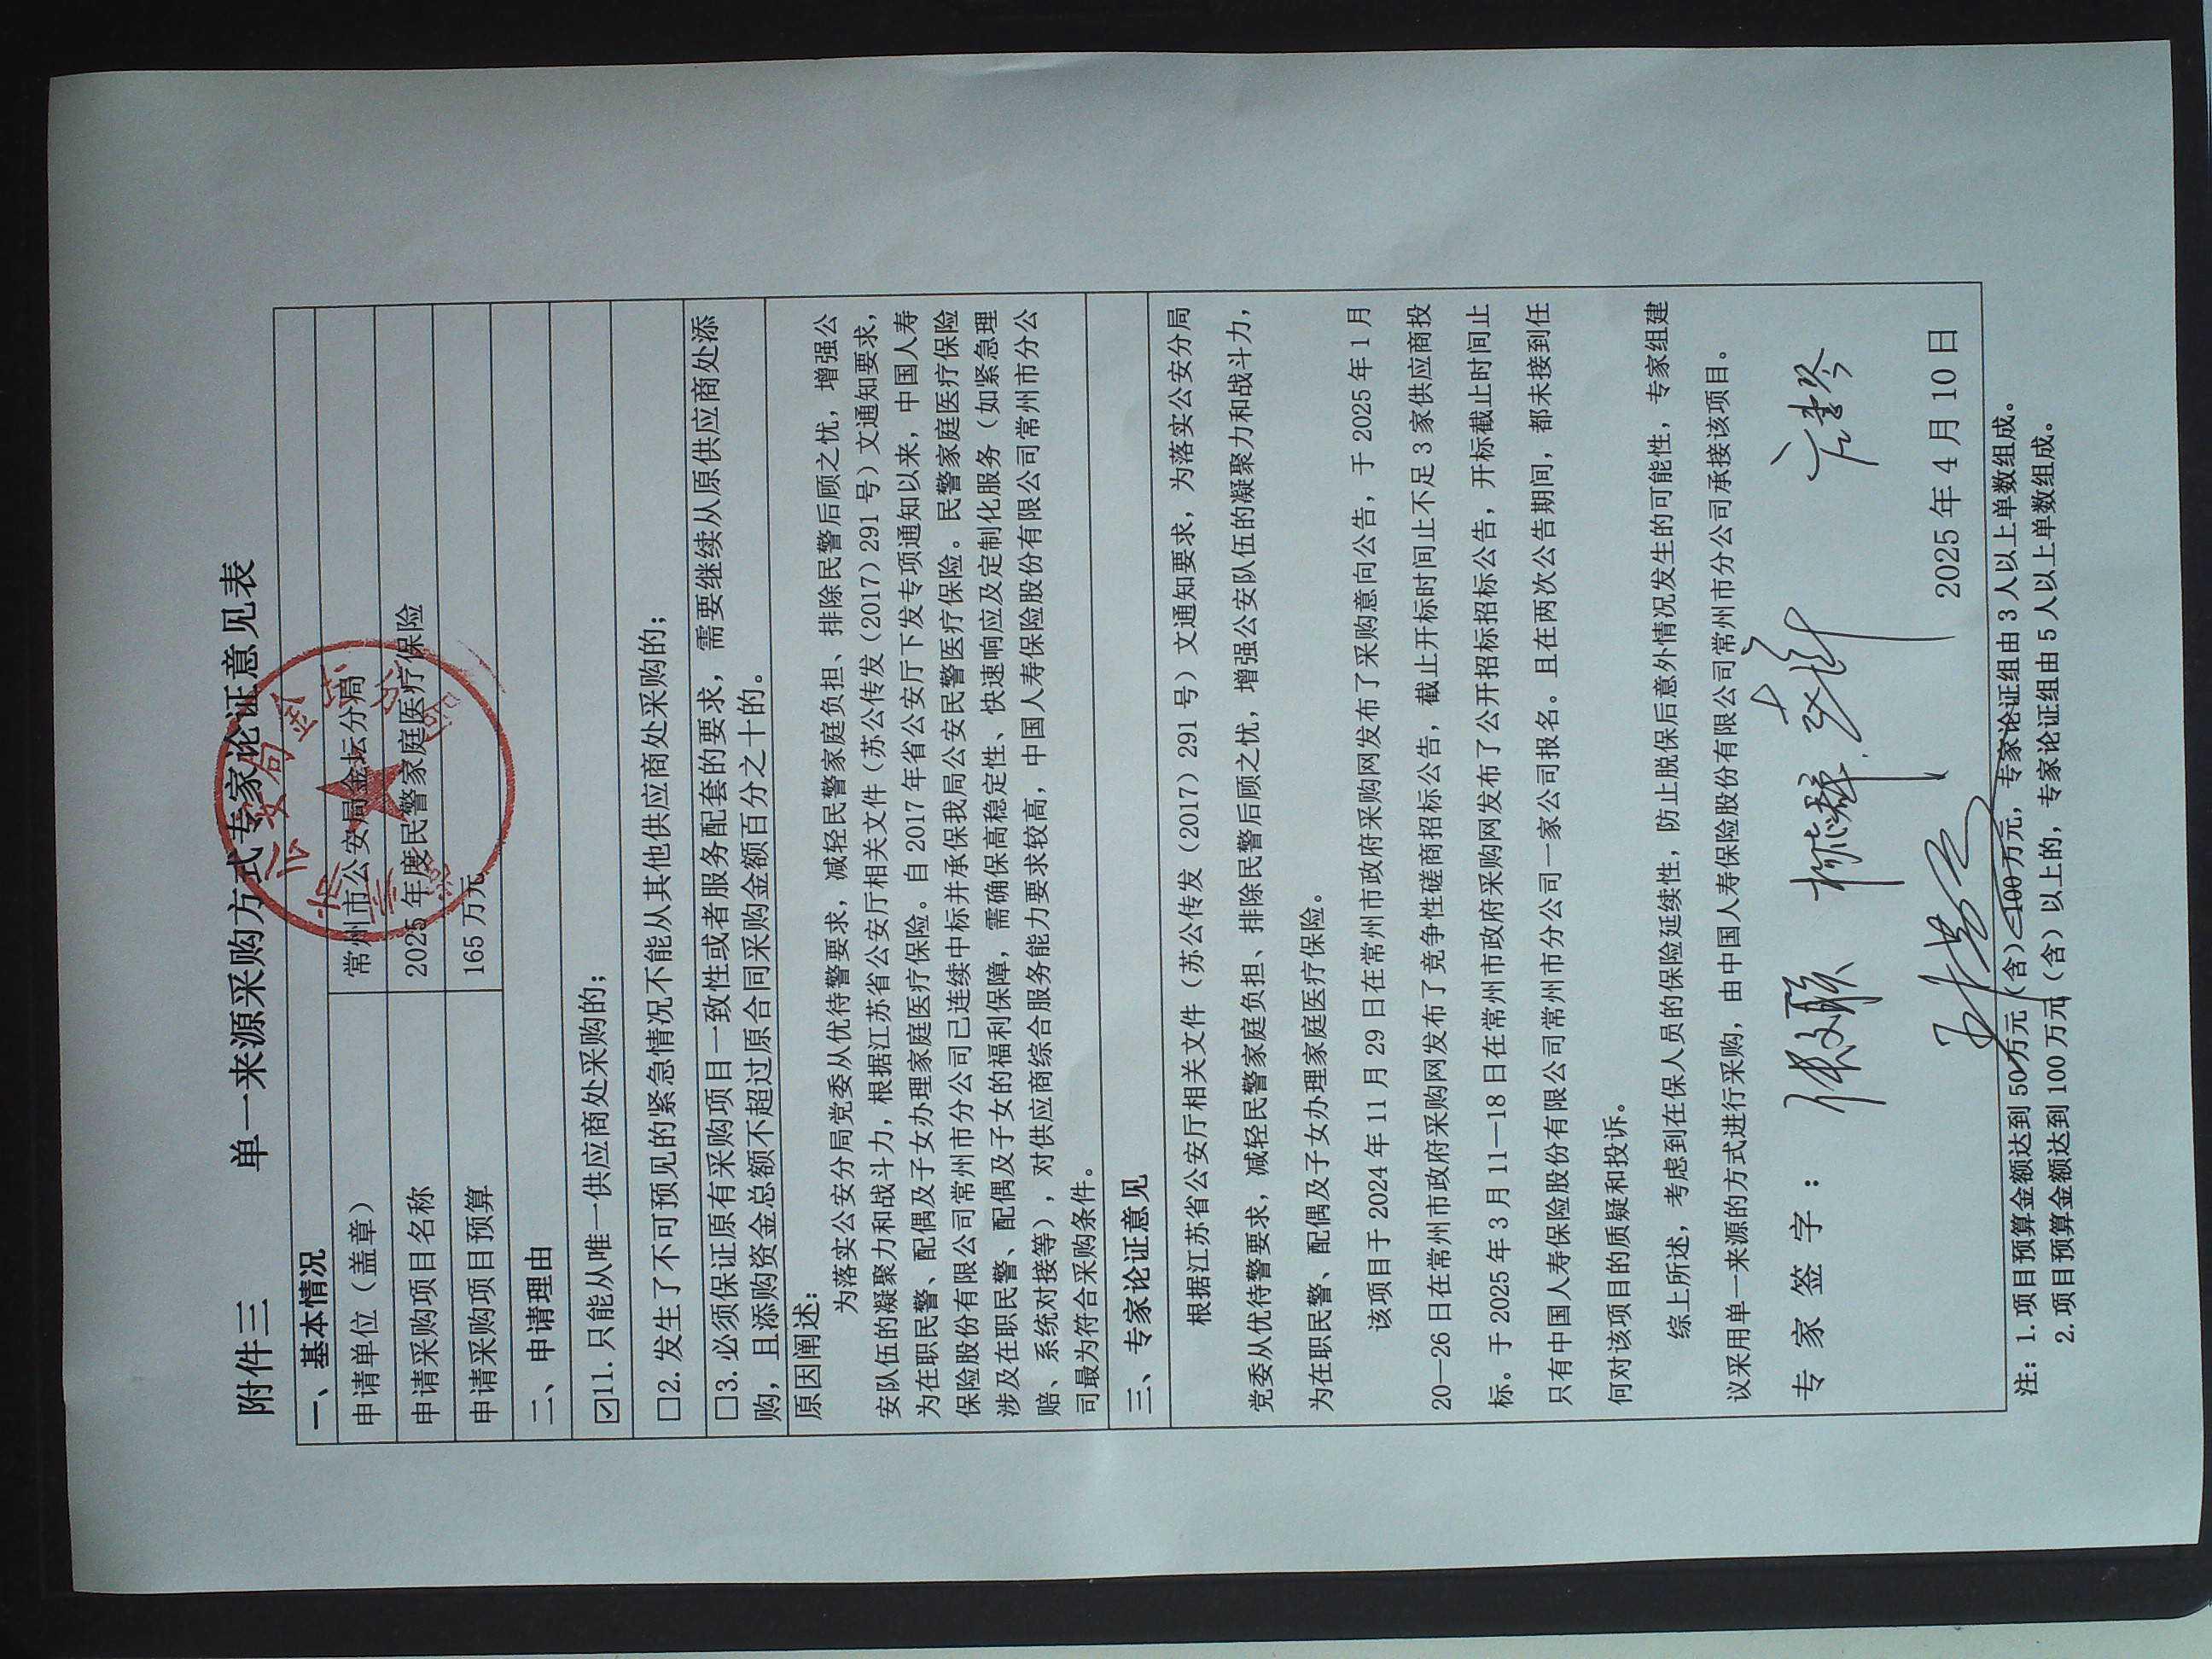 附件三 单一来源采购方式专家论证意见表
一、基本情况
申请单位（盖章） 常州市公安局金坛分局
申请采购项目名称 2025年度民警家庭医疗保险
申请采购项目预算 165万元
二、申请理由
☑11.只能从唯一供应商处采购的；
□2.发生了不可预见的紧急情况不能从其他供应商处采购的；
□3.必须保证原有采购项目一致性或者服务配套的要求，需要继续从原供应商处添
购，且添购资金总额不超过原合同采购金额百分之十的。
原因阐述：
为落实公安分局党委从优待警要求，减轻民警家庭负担、排除民警后顾之忧，增强公
安队伍的凝聚力和战斗力，根据江苏省公安厅相关文件（苏公传发（2017）291号）文通知要求，
为在职民警、配偶及子女办理家庭医疗保险。自2017年省公安厅下发专项通知以来，中国人寿
保险股份有限公司常州市分公司已连续中标并承保我局公安民警医疗保险。民警家庭医疗保险
涉及在职民警、配偶及子女的福利保障，需确保高稳定性、快速响应及定制化服务（如紧急理
赔、系统对接等），对供应商综合服务能力要求较高，中国人寿保险股份有限公司常州市分公
司最为符合采购条件。
三、专家论证意见
根据江苏省公安厅相关文件（苏公传发（2017）291号）文通知要求，为落实公安分局
党委从优待警要求，减轻民警家庭负担、排除民警后顾之忧，增强公安队伍的凝聚力和战斗力，
为在职民警、配偶及子女办理家庭医疗保险。
该项目于2024年11月29日在常州市政府采购网发布了采购意向公告，于2025年1月
20—26日在常州市政府采购网发布了竞争性磋商招标公告，截止开标时间止不足3家供应商投
标。于2025年3月11—18日在常州市政府采购网发布了公开招标招标公告，开标截止时间止
只有中国人寿保险股份有限公司常州市分公司一家公司报名。且在两次公告期间，都未接到任
何对该项目的质疑和投诉。
综上所述，考虑到在保人员的保险延续性，防止脱保后意外情况发生的可能性，专家组建
议采用单一来源的方式进行采购，由中国人寿保险股份有限公司常州市分公司承接该项目。
专家签字：
2025年4月10日
注：1.项目预算金额达到50万元（含）—100万元，专家论证组由3人以上单数组成。
2.项目预算金额达到100万元（含）以上的，专家论证组由5人以上单数组成。